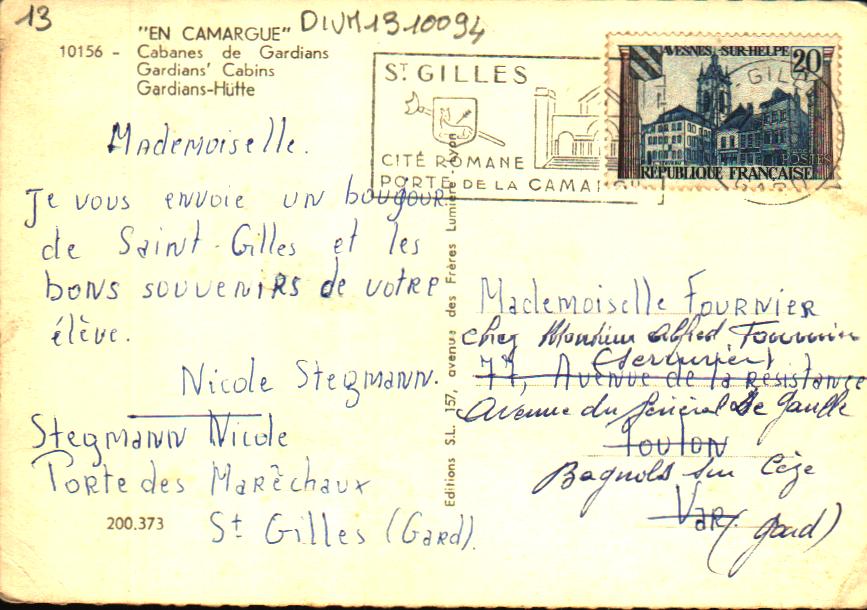 13
DIVM1310094
"EN CAMARGUE"
10156 - Cabanes de Gardians
Gardians' Cabins
Gardians-Hütte
ST GILLES
CITÉ ROMANE
PORTE DE LA CAMARGUE
AVESNES-SUR-HELPE 20
POSTES
RÉPUBLIQUE FRANÇAISE
Mademoiselle.
Je vous envoie un bougour
de Saint-Gilles et les
bons souvenirs de votre
élève.
Nicole Stegmann.
Stegmann Nicole
Porte des Marêchaux
St Gilles (Gard).
200.373
Editions S.L. 157, avenue des Frères Lumière - Lyon
Mademoiselle Fournier
chez Monsieur Alfred Fournier
(serrurier)
77, Avenue de la résistance
Avenue du Général de Gaulle
Toulon
Bagnols sur Cèze
Var
(Gard)